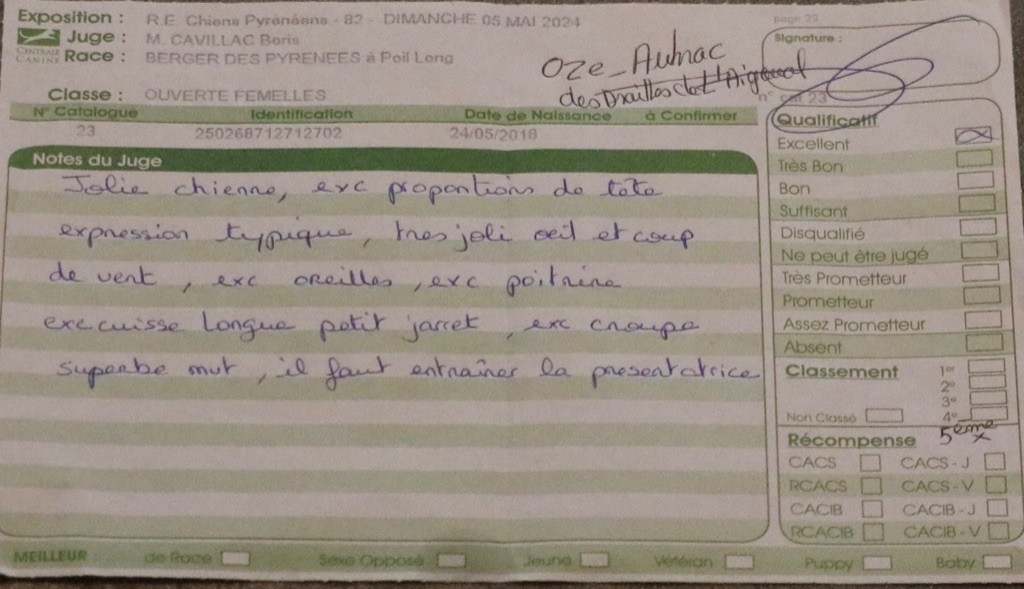 Exposition : R.E Chiens Pyrénéens - 82 - DIMANCHE 05 MAI 2024
page 23
Juge : M. CAVILLAC Boris
CENTRALE CANINE
Race : BERGER DES PYRENEES à Poil Long
Signature :
Oze-Aulnac
des Drailles de l'Aigoual
Classe : OUVERTE FEMELLES
n° cat 23
N° Catalogue Identification Date de Naissance à Confirmer
23 250268712712702 24/05/2018
Notes du Juge
Jolie chienne, exc proportions de tête
expression typique, tres joli oeil et coup
de vent, exc oreilles, exc poitrine
exc cuisse longue petit jarret, exc croupe
superbe mvt, il faut entraîner la presentatrice
Qualificatif
Excellent
Très Bon
Bon
Suffisant
Disqualifié
Ne peut être jugé
Très Prometteur
Prometteur
Assez Prometteur
Absent
Classement 1er
2e
3e
Non Classé 4e
5ème x
Récompense
CACS CACS - J
RCACS CACS - V
CACIB CACIB - J
RCACIB CACIB - V
MEILLEUR de Race Sexe Opposé Jeune Vétéran Puppy Baby